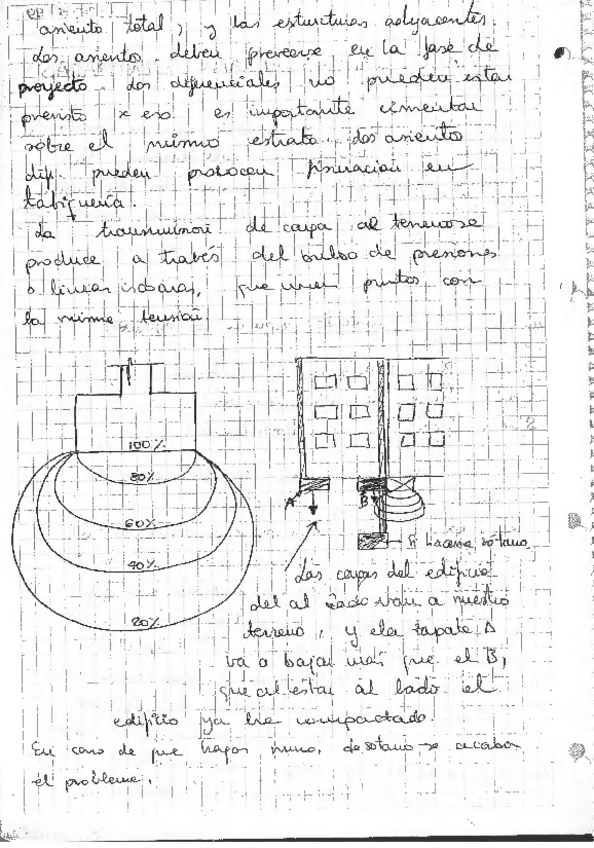 asiento total, y las estructuras adyacentes.
Los asiento. deben preveerse en la fase de
proyecto. Los diferenciales no pueden estar
previsto x eso es importante cimentar
sobre el mismo estrato. Los asiento
dif. pueden provocar fisuracion en
tabiquería.
La transmision de carga al terreno se
produce a través del bulbo de presiones
o lineas isobaras, que unen puntos con
la misma tension.
100%
80%
60%
40%
20%
A
B
Si hacemos sótano
Las cargas del edificio
del al lado van a nuestro
terreno, y el a zapata A
va a bajar mas que el B,
que al estar al lado el
edificio ya ha compactado.
En caso de que hagas muro, de sotano se acaba
el problema.